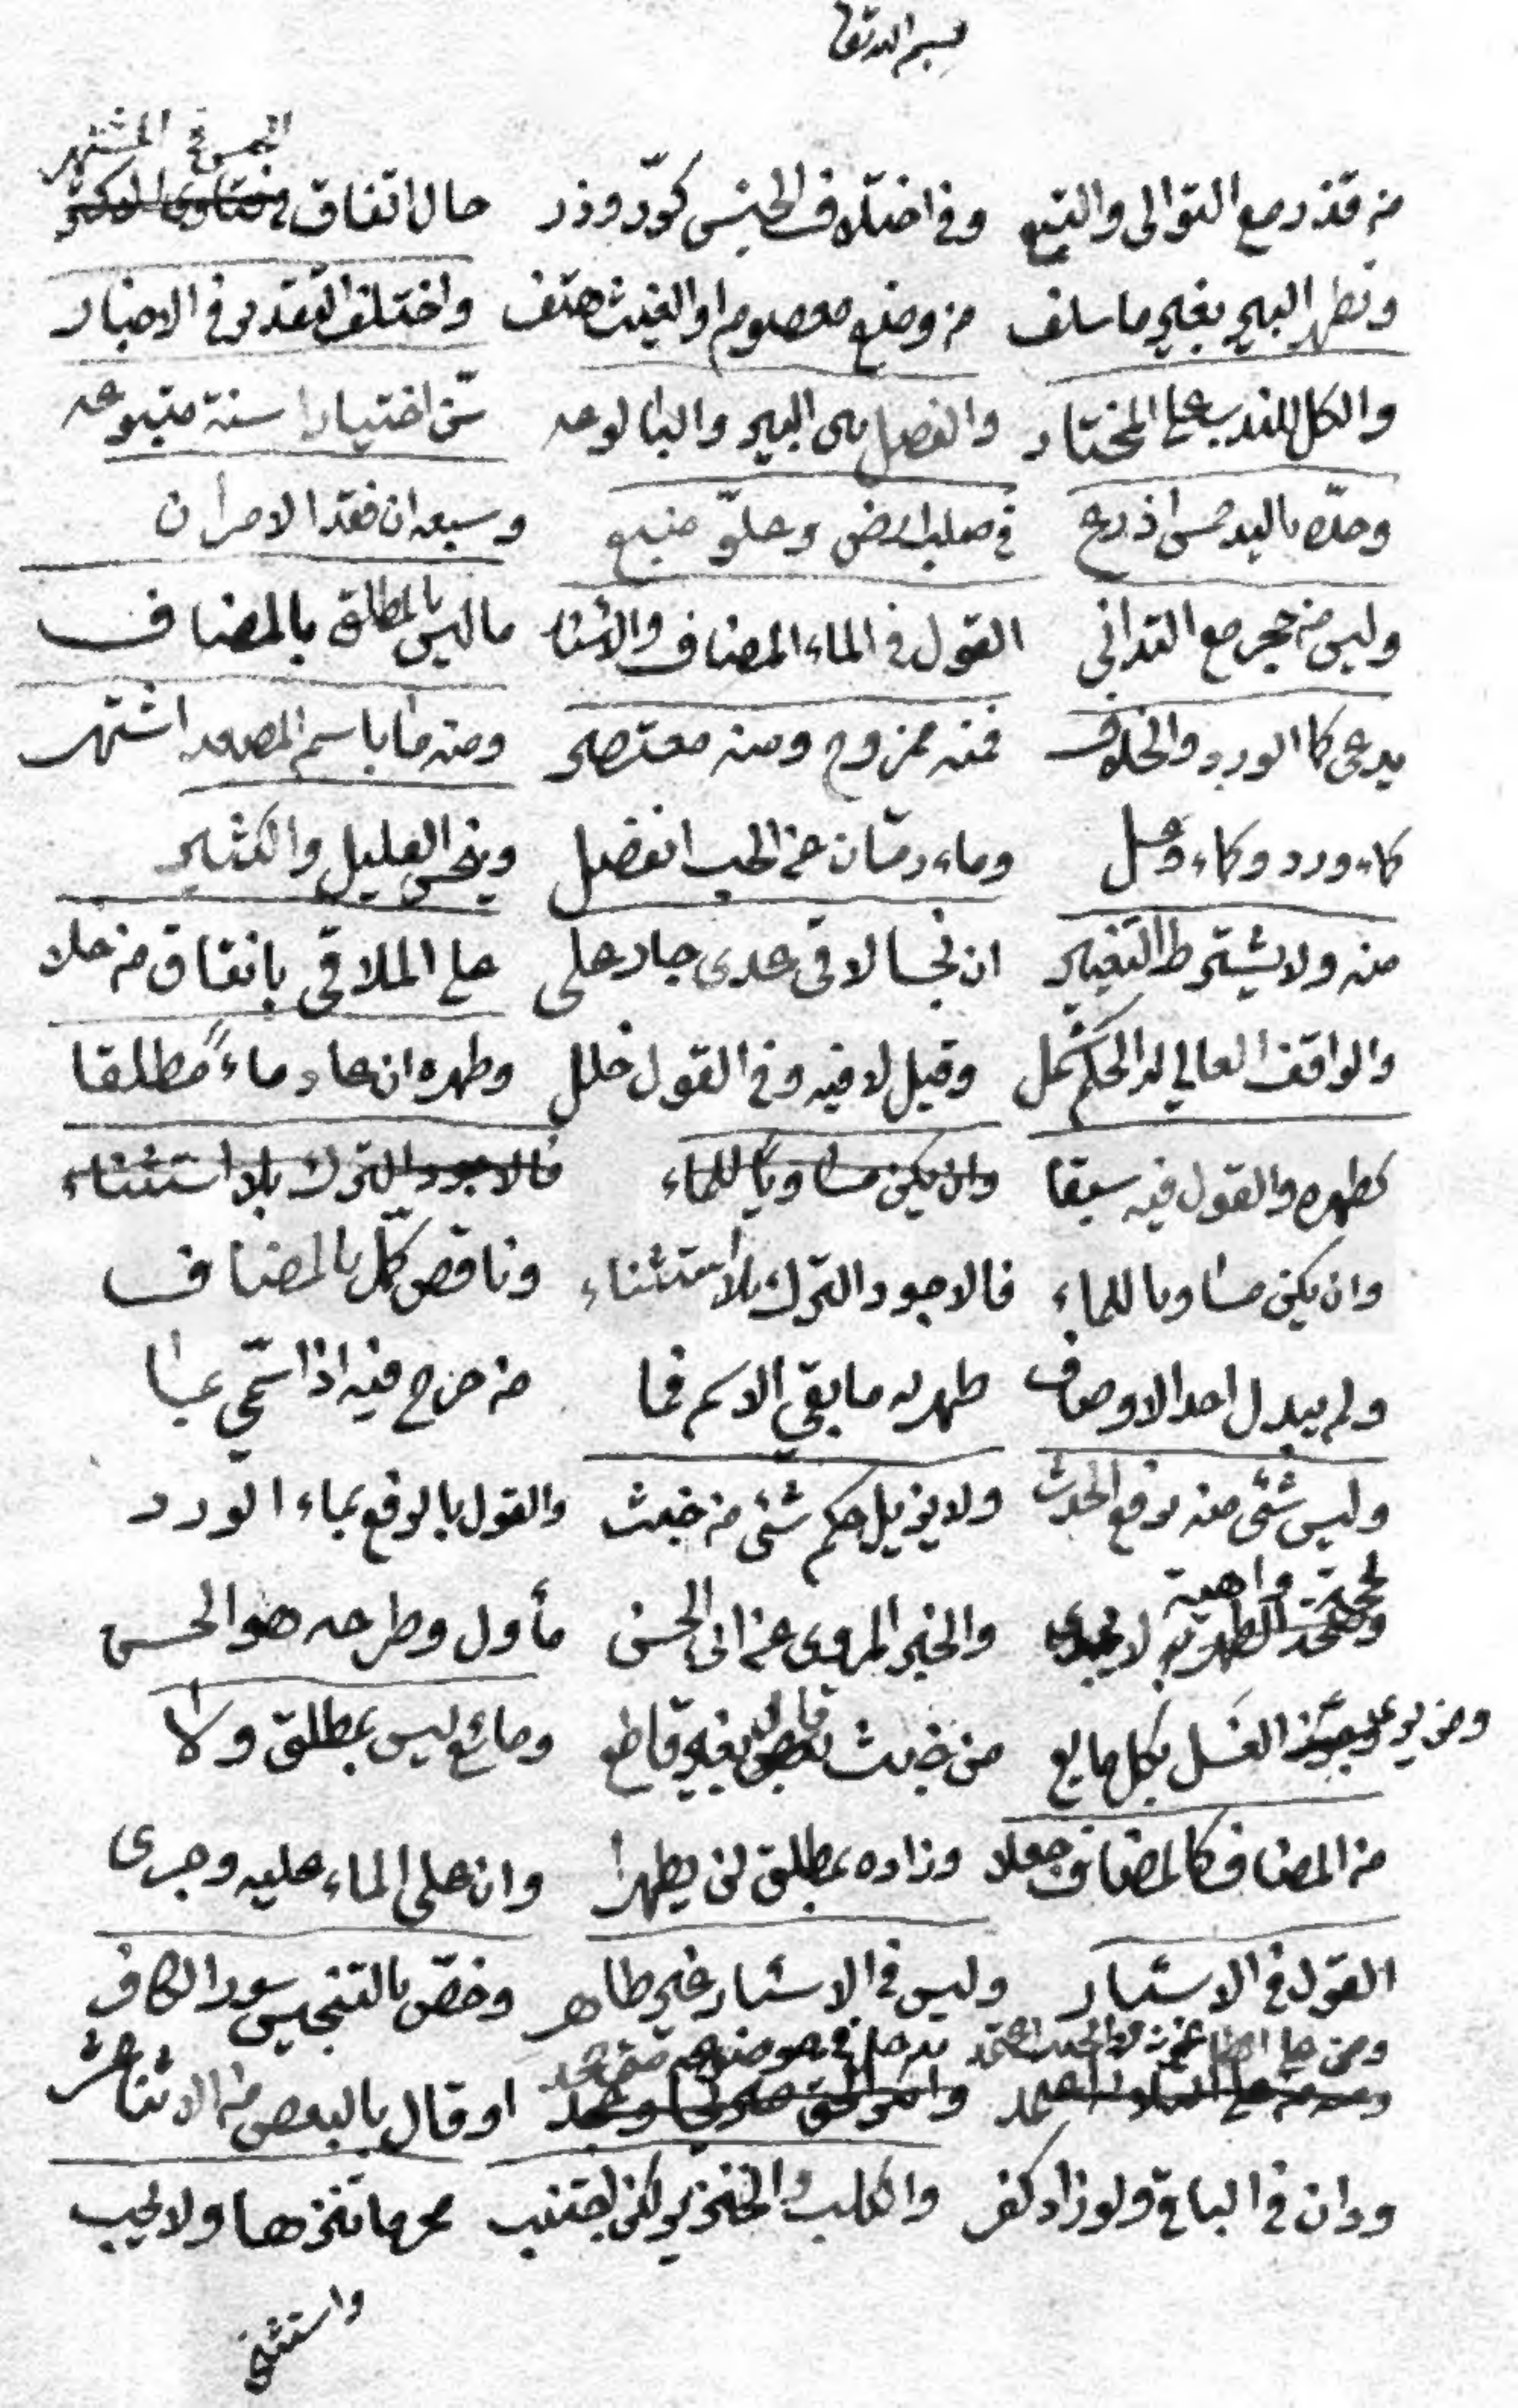 بسم الله تعالى
الجموع المشتهر
من قذر مع التوالي والتبع وفي اختلاف الجنس كرّ وذر حال اتفاق
وتطهر البير بغير ما سلف من وضع معصوم او الغيث هتف واختلف التقدير في الاخبار
والكل للندب على المختار والفصل بين البير والبالوعه سنّ اختيارا سنة متبوعه
وحدّه باليد خمس اذرع في صلب ارض وعلوّ منبع وسبعه ان فقد الامران
وليس من حجر مع التداني القول في الماء المضاف والأسئار ما ليس بالمطلق بالمضاف
يدعى كما الورد والخلاف فمنه ممزوج ومنه معتصر ومنه ما باسم المصعد اشتهر
كماء ورد وكماء وعسل وماء رمّان عن الحب انفصل وينجس القليل والكثير
منه ولا يشترط التغيير ان نجسا لاقى عدى جار على على الملاقي باتفاق من خلا
والواقف العالي له الحكم شمل وقيل لا فيه وفي القول خلل وطهره ان عاد ماء مطلقا
كطهره والقول فيه سبقا وان يكن مساويا للماء فالاجود الترك بلا استثناء
وان يكن مساويا للماء فالاجود الترك بلا استثناء وناقص كمّل بالمضاف
ولم يبدل احد الاوصاف طهر به ما بقي الاسم فما من حرج فيه اذا سمّي بما
وليس شئ منه يرفع الحدث ولا يزيل حكم شئ من خبث والقول بالرفع بماء الورد
لحجة واهية لا يجدى والخبر المروى عن ابي الحسن مأول وطرحه هو الحسن
ومن يرى الغسل بكل مايع من خبث قال بغير قاطع ومائع ليس بمطلق ولا
من المضاف كالمضاف جعلا وزاده بمطلق لن يطهرا وان على الماء عليه وجرى
القول في الاسئار وليس في الاسئار غير طاهر وخصّ بالتنجيس سور الكافر
او قال بالبعض من الاثنا عشر
ودان في الباقي ولو زاد كفر والكلب والخنزير لكن اجتنب محرما تنزها ولا يجب
واستثنى